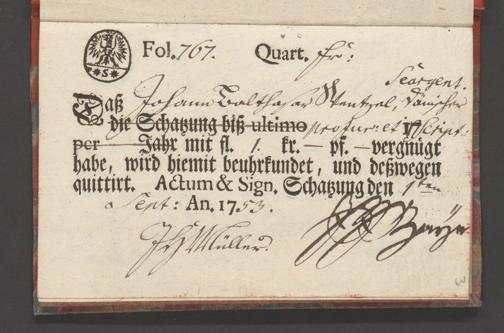 *S*
Fol. 767. Quart. fr:
Seargent.
Daß Johann Balthaser Wentzel,
die Schatzung biß ultimo pro fut: et
per Jahr mit fl. 1. kr. — pf. — vergnügt
habe, wird hiemit beuhrkundet, und deßwegen
quittirt. Actum & Sign. Schatzung den 1ten
Sept: An. 1753.
Müller.